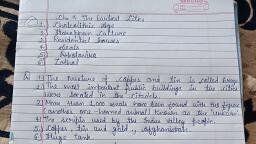 Ch. 3 The Earliest Cities
1) Chalcolithic Age
2) Harappan Culture
3) Residential houses
4) Seals
5)
6) Lothal
1) The mixture of copper and tin is called bronze
2) The most important public buildings in the cities
were located in the citadel.
3) More than 1,000 seals have been found with the figure
of another one horned animal known as the unicorn
4) The scripts used by the Indus Valley people.
5) Copper, tin and gold, Afghanistan.
6) Huge tank.